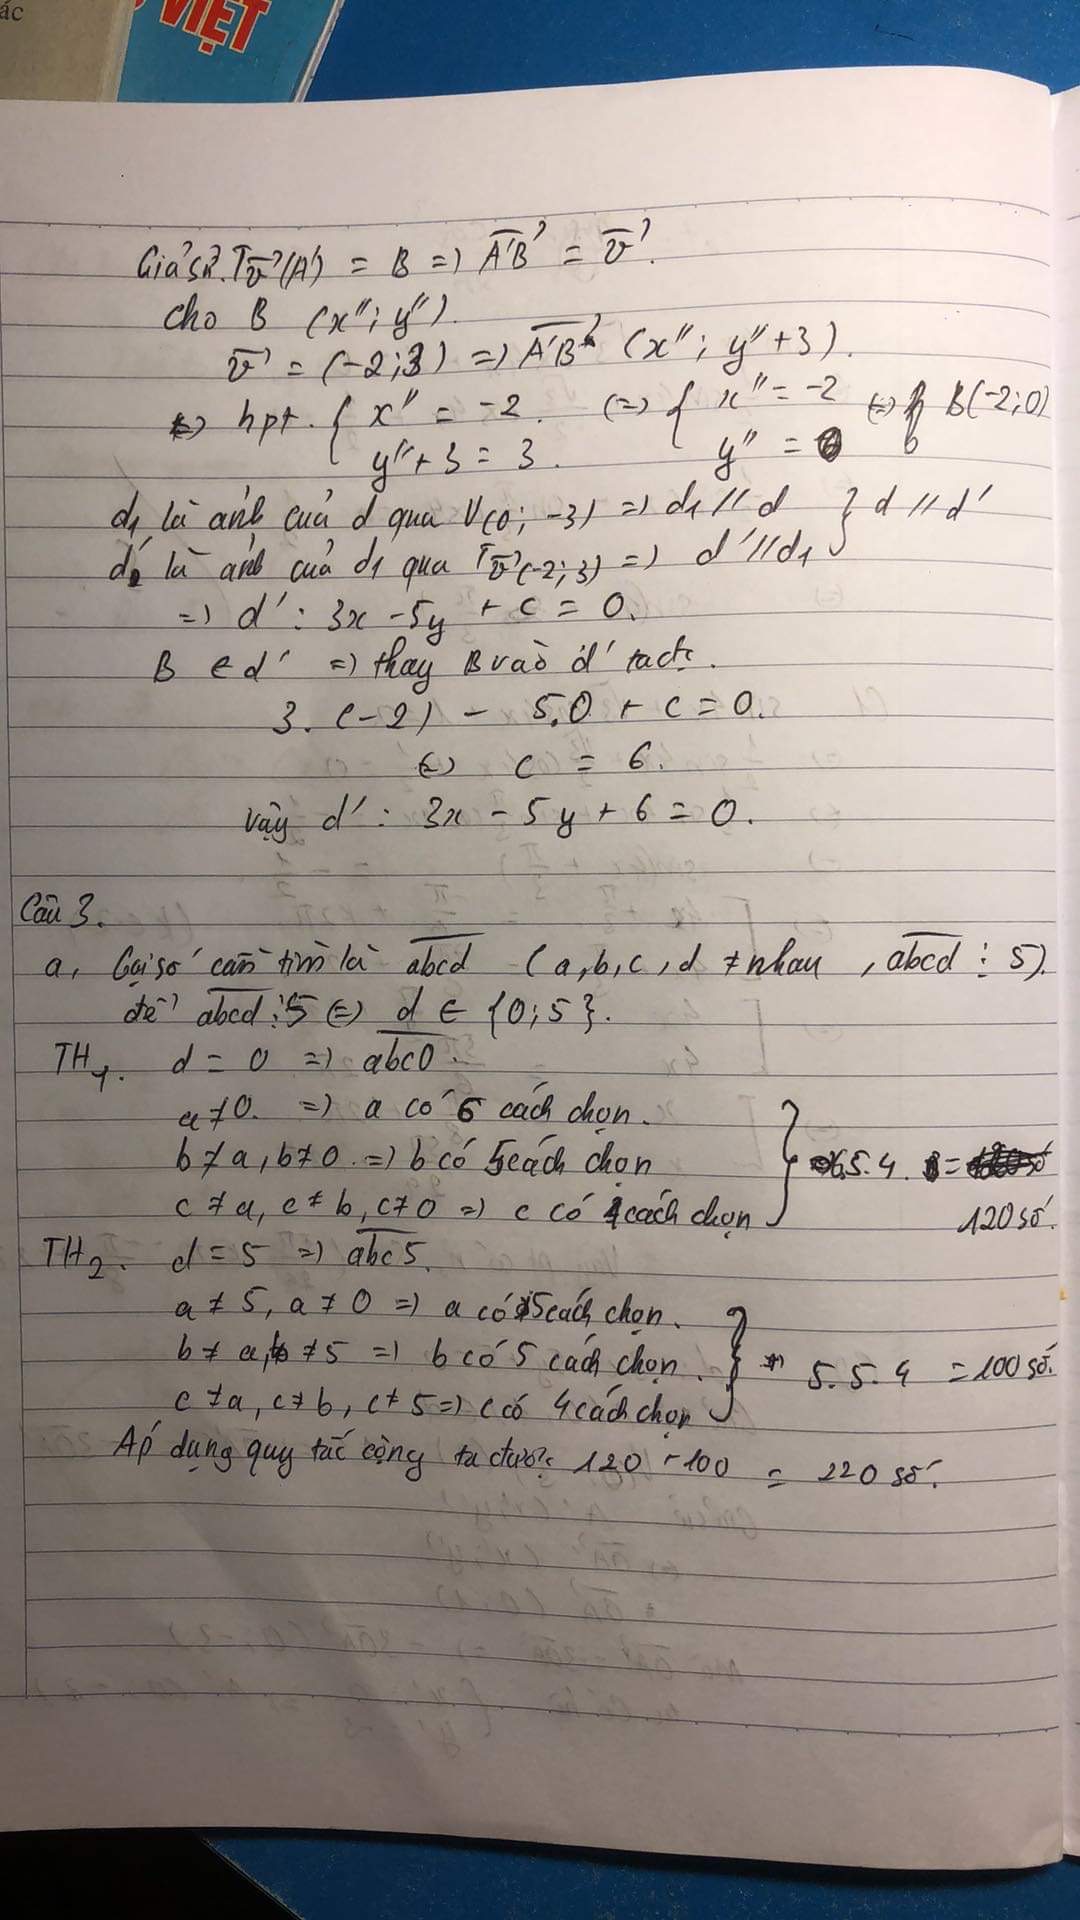 ác
VIỆT
Giả sử T_v⃗(A') = B => A'B⃗ = v⃗.
cho B (x''; y'').
v⃗ = (-2; 3) => A'B⃗ (x''; y''+3).
<=> hpt. { x'' = -2. (=> { x'' = -2 <=> B(-2;0)
y''+3 = 3. y'' = 0
d1 là ảnh của d qua V(0; -3) => d1 // d } d // d'
d' là ảnh của d1 qua T_v⃗(-2; 3) => d' // d1
=> d' : 3x - 5y + c = 0.
B ∈ d' => thay B vào d' ta đc.
3. (-2) - 5.0 + c = 0.
<=> c = 6.
vậy d' : 3x - 5y + 6 = 0.
Câu 3.
a, Gọi số cần tìm là abcd (a, b, c, d ≠ nhau, abcd ⋮ 5).
để abcd ⋮ 5 <=> d ∈ {0; 5}.
TH1. d = 0 => abc0.
a ≠ 0. => a có 6 cách chọn.
b ≠ a, b ≠ 0. => b có 5 cách chọn } 6.5.4. =
c ≠ a, c ≠ b, c ≠ 0 => c có 4 cách chọn 120 số.
TH2. d = 5 => abc5.
a ≠ 5, a ≠ 0 => a có 5 cách chọn.
b ≠ a, b ≠ 5 => b có 5 cách chọn. } => 5.5.4 = 100 số.
c ≠ a, c ≠ b, c ≠ 5 => c có 4 cách chọn
Áp dụng quy tắc cộng ta được 120 + 100 = 220 số.